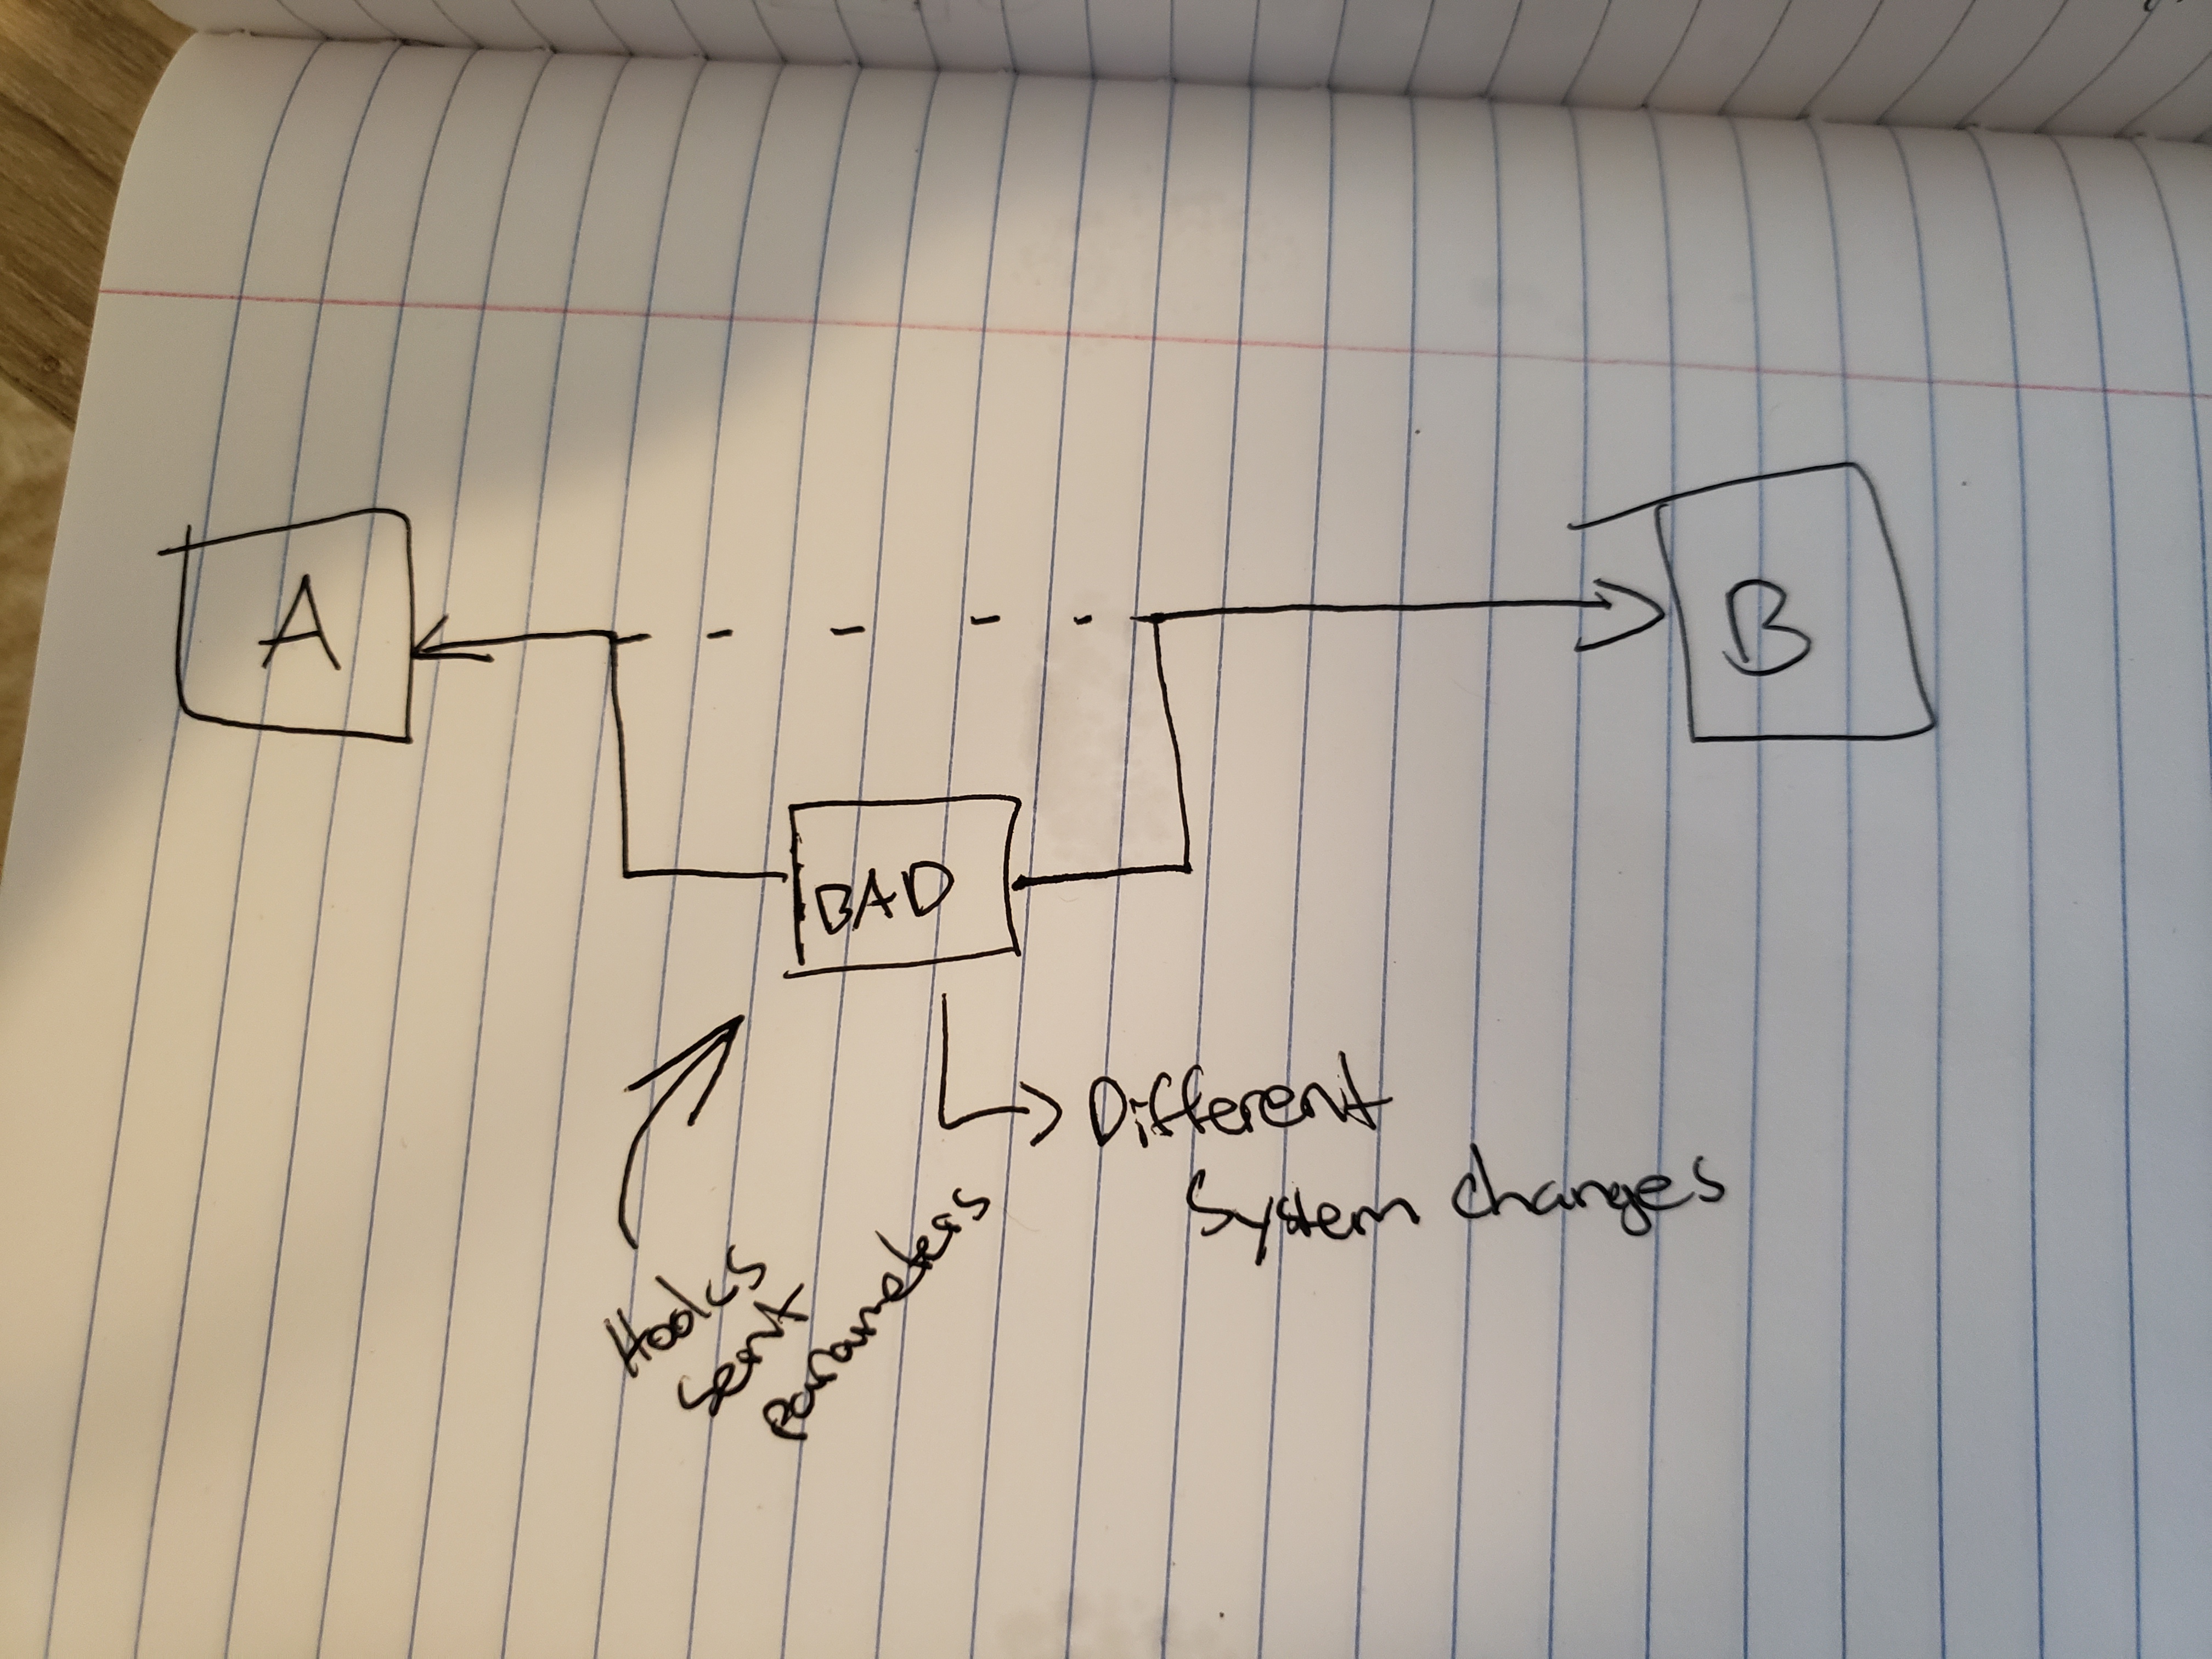 A
B
BAD
Different
System changes
Hooks
sent
parameters